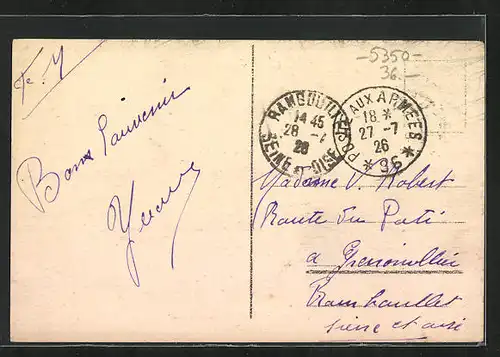 Fe. M
-5350-
36.-
RAMBOUILLET
14 45
28 - 7
26
SEINE ET OISE
POSTE AUX ARMEES
18 *
27 - 7
26
* 96 *
Bons Souvenir
Yvonne
Madame V. Robert
Route du Pati
a
Rambouillet
Seine et oise